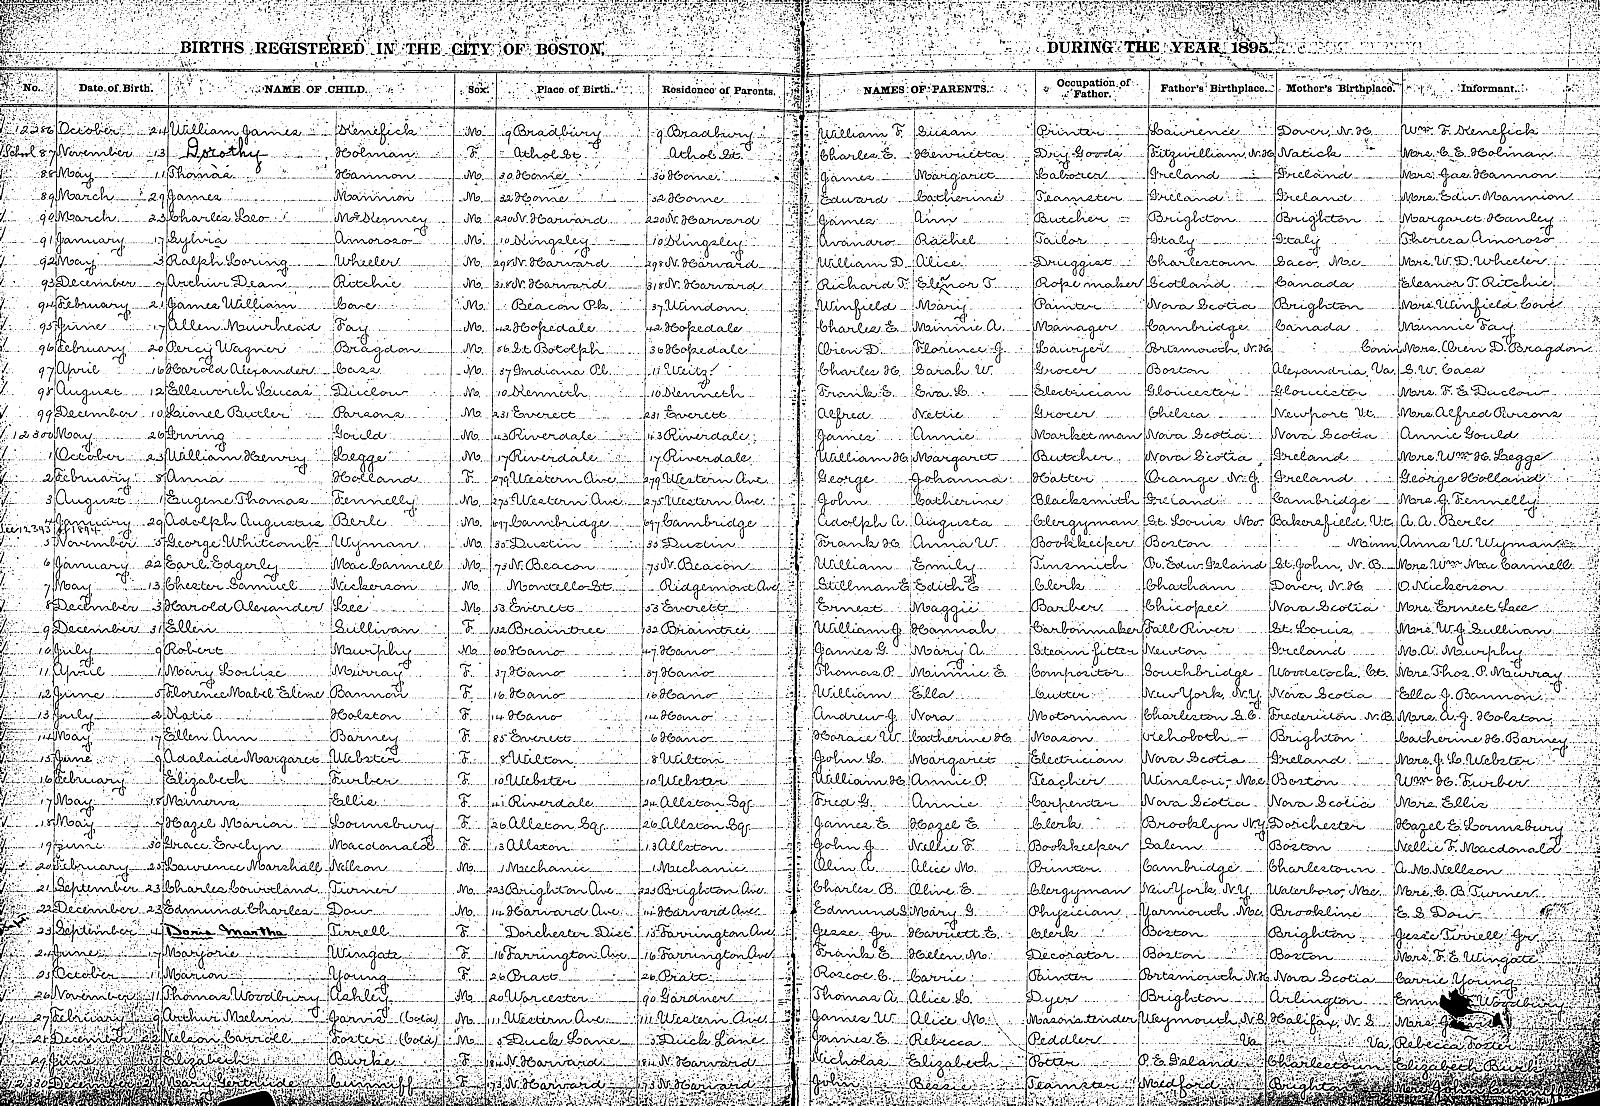 BIRTHS REGISTERED IN THE CITY OF BOSTON, DURING THE YEAR 1895.
No. Date of Birth. NAME OF CHILD. Sex. Place of Birth. Residence of Parents. NAMES OF PARENTS. Occupation of Father. Father's Birthplace. Mother's Birthplace. Informant.
12286 October 24 William James Kenefick M. 9 Bradbury 9 Bradbury William F. Susan Printer Lawrence Dover, N.H. Wm. F. Kenefick
87 November 13 Dorothy Holman F. Athol St. Athol St. Charles E. Henrietta Dry Goods Fitzwilliam, N.H. Natick Mrs. C. E. Holman
88 May 11 Thomas Hannon M. 30 Home 30 Home James Margaret Laborer Ireland Ireland Mrs. Jas Hannon
89 March 29 James Mannion M. 32 Home 32 Home Edward Catherine Teamster Ireland Ireland Mrs. Edw. Mannion
90 March 23 Charles Leo McKenney M. 220 N. Harvard 220 N. Harvard James Ann Butcher Brighton Brighton Margaret Hanley
91 January 17 Sylvia Amoroso M. 10 Kingsley 10 Kingsley Rachel Tailor Italy Italy Theresa Amoroso
92 May 3 Ralph Loring Wheeler M. 298 N. Harvard 298 N. Harvard William D. Alice Druggist Charlestown Saco, Me. Mrs. W. D. Wheeler
93 December 7 Archur Dean Ritchie M. 318 N. Harvard 318 N. Harvard Richard T. Elenor T. Rope maker Scotland Canada Eleanor T. Ritchie
94 February 21 James William Cove M. Beacon Pk. 37 Windom Winfield Mary Painter Nova Scotia Brighton Mrs. Winfield Cove
95 June 17 Allen Muirhead Fay M. 42 Hopedale 42 Hopedale Charles E. Minnie A. Manager Cambridge Canada Minnie Fay
96 February 20 Percy Wagner Bragdon M. 56 St Botolph 36 Hopedale Oren D. Florence J. Lawyer Portsmouth, N.H. Conn. Mrs. Oren D. Bragdon
97 April 16 Harold Alexander Cass M. 37 Indiana Pl. 11 Weitz Charles H. Sarah W. Grocer Boston Alexandria, Va. S. W. Cass
98 August 12 Ellsworth Lucas Duclow M. 10 Kenneth 10 Kenneth Frank E. Eva L. Electrician Gloucester Gloucester Mrs. F. E. Duclow
99 December 10 Lionel Butler Parsons M. 231 Everett 231 Everett Alfred Nettie Grocer Chelsea Newport Vt. Mrs. Alfred Parsons
12300 May 26 Irving Gould M. 43 Riverdale 43 Riverdale James Annie Marketman Nova Scotia Nova Scotia Annie Gould
1 October 23 William Henry Legge M. 17 Riverdale 17 Riverdale William H. Margaret Butcher Nova Scotia Ireland Mrs. Wm. H. Legge
2 February 8 Anna Holland F. 279 Western Ave. 279 Western Ave. George Johanna Hatter Orange N.J. Ireland George Holland
3 August 1 Eugene Thomas Fennelly M. 275 Western Ave. 275 Western Ave. John Catherine Blacksmith Ireland Cambridge Mrs. J. Fennelly
4 January 29 Adolph Augustus Berle M. 697 Cambridge 697 Cambridge Adolph A. Augusta Clergyman St. Louis Mo. Bakersfield, Vt. A. A. Berle
5 November 5 George Whitcomb Wyman M. 35 Dustin 35 Dustin Frank H. Anna W. Bookkeeper Boston Minn. Anna W. Wyman
6 January 22 Earl Edgerly MacCannell M. 75 N. Beacon 75 N. Beacon William Emily Tinsmith Pr. Edw. Island St. John, N.B. Mrs. Wm. MacCannell
7 May 13 Chester Samuel Nickerson M. Montello St. Ridgemont Ave. Stillman E. Edith E. Clerk Chatham Dover, N.H. O. Nickerson
8 December 3 Harold Alexander Lee M. 53 Everett 53 Everett Ernest Maggie Barber Chicopee Nova Scotia Mrs. Ernest Lee
9 December 31 Ellen Sullivan F. 132 Braintree 132 Braintree William J. Hannah Carbonmaker Fall River St. Louis Mrs. W. J. Sullivan
10 July 9 Robert Murphy M. 60 Hano 47 Hano James G. Mary A. Steam fitter Newton Ireland M. A. Murphy
11 April 1 Mary Louise Murray F. 37 Hano 37 Hano Thomas P. Minnie E. Compositor Southbridge Woodstock, Ct. Mrs. Thos. P. Murray
12 June 5 Florence Mabel Elene Bannon F. 16 Hano 16 Hano William Ella Cutter New York, N.Y. Nova Scotia Ella J. Bannon
13 July 2 Katie Holston F. 14 Hano 14 Hano Andrew J. Nora Motorman Charleston S.C. Fredericton N.B. Mrs. A. J. Holston
14 May 17 Ellen Ann Barney F. 85 Everett 6 Hano Horace W. Catherine H. Mason Rehoboth Brighton Catherine H. Barney
15 June 9 Adalaide Margaret Webster F. 8 Wilton 8 Wilton John L. Margaret Electrician Nova Scotia Ireland Mrs. J. L. Webster
16 February 7 Elizabeth Furber F. 10 Webster 10 Webster William H. Annie P. Teacher Winslow, Me. Boston Wm. H. Furber
17 May 18 Minerva Ellis F. 41 Riverdale 24 Allston Sq. Fred G. Annie Carpenter Nova Scotia Nova Scotia Mrs. Ellis
18 May 7 Hazel Marion Lounsbury F. 26 Allston Sq. 26 Allston Sq. James E. Hazel E. Clerk Brooklyn N.Y. Dorchester Hazel E. Lounsbury
19 June 30 Grace Evelyn Macdonald F. 13 Allston 13 Allston John J. Nellie F. Bookkeeper Salem Boston Nellie F. Macdonald
20 February 25 Laurence Marshall Nellson M. 1 Mechanic 1 Mechanic Olin A. Alice M. Printer Cambridge Charlestown A. M. Nellson
21 September 23 Charles Courtland Turner M. 223 Brighton Ave. 223 Brighton Ave. Charles B. Olive E. Clergyman New York, N.Y. Waterboro, Me. Mrs. C. B. Turner
22 December 23 Edmund Charles Dow M. 14 Harvard Ave. 14 Harvard Ave. Edmund S. Mary G. Physician Yarmouth Me. Brookline E. S. Dow
23 September 4 Doris Martha Tirrell F. Dorchester Dist 15 Farrington Ave. Jesse Jr. Harriett E. Clerk Boston Brighton Jesse Tirrell Jr.
24 June 17 Marjorie Wingate F. 16 Farrington Ave. 16 Farrington Ave. Frank E. Helen M. Decorator Boston Boston Mrs. F. E. Wingate
25 October 11 Marion Young F. 26 Pratt 26 Pratt Roscoe C. Carrie Painter Portsmouth N.H. Nova Scotia Carrie Young
26 November 11 Thomas Woodbury Ashley M. 20 Worcester 90 Gardner Thomas A. Alice L. Dyer Brighton Arlington Woodbury
27 February 9 Arthur Melvin Jarvis (Col'd) M. 111 Western Ave. 111 Western Ave. James W. Alice M. Mason's tender Weymouth, N.S. Halifax, N.S. Mrs.
28 December 22 Nelson Carroll Foster (Col'd) M. 5 Duck Lane 5 Duck Lane James E. Rebecca Peddler Va. Va. Rebecca Foster
29 June 5 Elizabeth Burke F. 184 N. Harvard 184 N. Harvard Nicholas Elizabeth Potter P. E. Island Charlestown Elizabeth Burke
12330 December 21 Mary Gertrude Cunniff F. 173 N. Harvard 173 N. Harvard John Bessie Teamster Medford Brighton